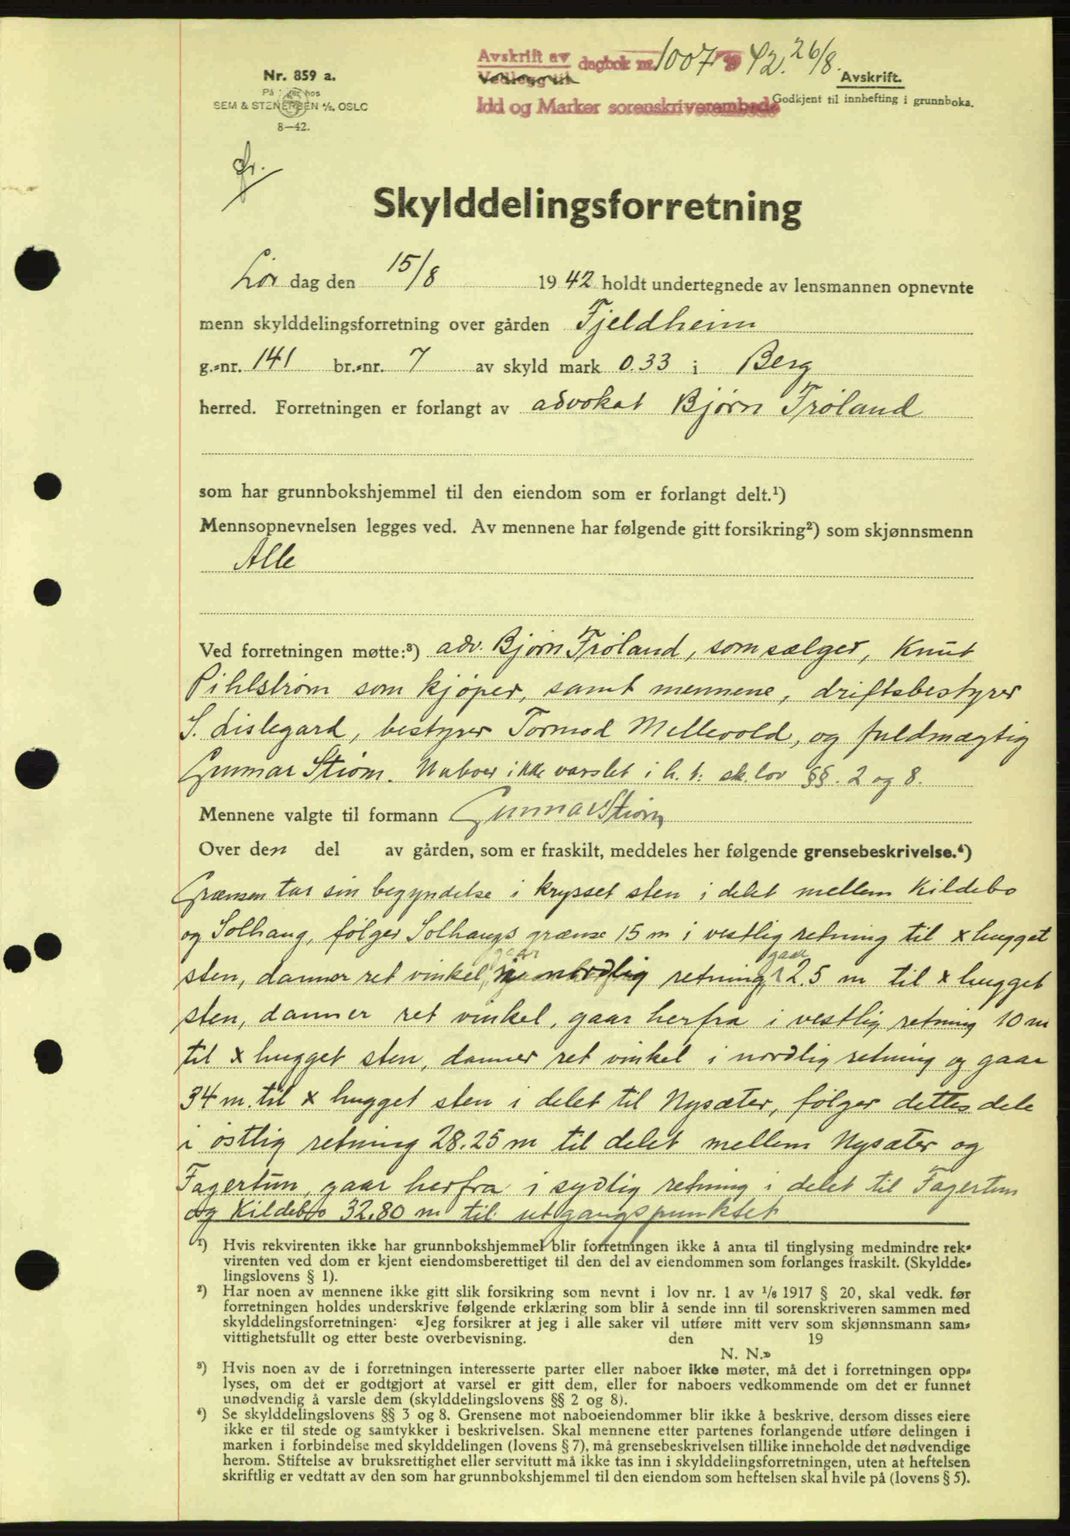 Avskrift av dagbok nr. 1007 19 42. 26/8.
Vedlegg til
Idd og Marker sorenskriverembede
Avskrift.
Godkjent til innhefting i grunnboka.
Nr. 859 a.
SEM & STENERSEN A/S OSLO
8—42.
Skylddelingsforretning
Lør dag den 15/8 1942 holdt undertegnede av lensmannen opnevnte
menn skylddelingsforretning over gården Fjeldheim
g.-nr. 141 br.-nr. 7 av skyld mark 0.33 i Berg
herred. Forretningen er forlangt av advokat Bjørn Frøland
som har grunnbokshjemmel til den eiendom som er forlangt delt.¹)
Mennsopnevnelsen legges ved. Av mennene har følgende gitt forsikring²) som skjønnsmenn
Alle
Ved forretningen møtte:³) adv. Bjørn Frøland, som sælger, Knut
Pihlstrøm som kjøper, samt mennene, driftsbestyrer
S. Lislegard, bestyrer Tormod Mellevold, og fuldmægtig
Gunnar Strøm. Naboer ikke varslet i h. t. sk. lov §§. 2 og 8.
Mennene valgte til formann Gunnar Strøm
Over den del av gården, som er fraskilt, meddeles her følgende grensebeskrivelse.⁴)
Grænsen tar sin begyndelse i krysset sten i delet mellem Kildebo
og Solhaug, følger Solhaugs grænse 15 m i vestlig retning til x hugget
sten, danner ret vinkel, gaar nordlig retning 2.5 m til x hugget
sten, danner ret vinkel, gaar herfra i vestlig retning 10 m
til x hugget sten, danner ret vinkel i nordlig retning og gaar
34 m. til x hugget sten i delet til Nysæter, følger dettes dele
i østlig retning 28.25 m til delet mellem Nysæter og
Fagertun, gaar herfra i sydlig retning i delet til Fagertun
og Kildebo 32.80 m til utgangspunktet.
¹) Hvis rekvirenten ikke har grunnbokshjemmel blir forretningen ikke å anta til tinglysing medmindre rek-
virenten ved dom er kjent eiendomsberettiget til den del av eiendommen som forlanges fraskilt. (Skyldde-
lingslovens § 1).
²) Har noen av mennene ikke gitt slik forsikring som nevnt i lov nr. 1 av 1/6 1917 § 20, skal vedk. før
forretningen holdes underskrive følgende erklæring som blir å sende inn til sorenskriveren sammen med
skylddelingsforretningen: «Jeg forsikrer at jeg i alle saker vil utføre mitt verv som skjønnsmann sam-
vittighetsfullt og etter beste overbevisning. den 19
N. N.»
³) Hvis noen av de i forretningen interesserte parter eller naboer ikke møter, må det i forretningen opp-
lyses, om det er godtgjort at varsel er gitt dem, eller for naboers vedkommende om det er funnet
unødvendig å varsle dem (skylddelingslovens §§ 2 og 8).
⁴) Se skylddelingslovens §§ 3 og 8. Grensene mot naboeiendommer blir ikke å beskrive, dersom disses eiere
ikke er til stede og samtykker i beskrivelsen. Skal mennene etter partenes forlangende utføre delingen i
marken i forbindelse med skylddelingen (lovens § 7), må grensebeskrivelsen tillike inneholde det nødvendige
herom. Stiftelse av bruksrettighet eller servitutt må ikke tas inn i skylddelingsforretningen, uten at heftelsen
skriftlig er vedtatt av den som har grunnbokshjemmel til den eiendom som heftelsen skal hvile på (lovens § 5).